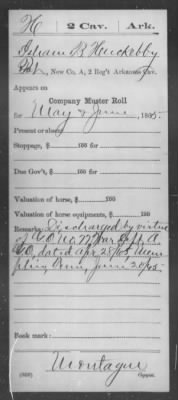 H 2 Cav. Ark.
Isham B Huckabby
Pvt., New Co. A, 2 Reg't Arkansas Cav.
Appears on
Company Muster Roll
for May & June, 1865
Present or absent
Stoppage, $ 100 for
Due Gov't, $ 100 for
Valuation of horse, $ 100
Valuation of horse equipments, $ 100
Remarks: Discharged by virtue
of G.O. No. 77 War Dept. A.
G.O. dated Apr. 28/65, Mem
phis, Tenn, June 20/65.
Book mark:
Montague
(858) Copyist.